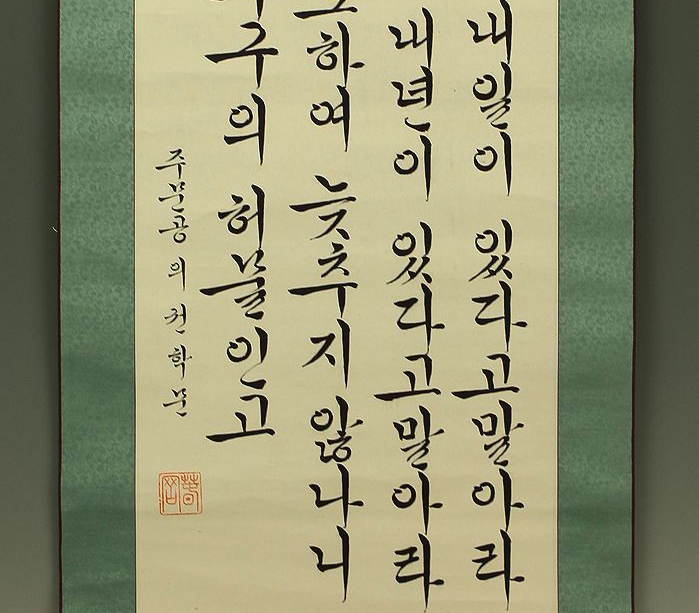 내일이 있다고말아라
내년이 있다고말아라
하여 늦추지 않나니
구의 허물인고
주문공의 권학문